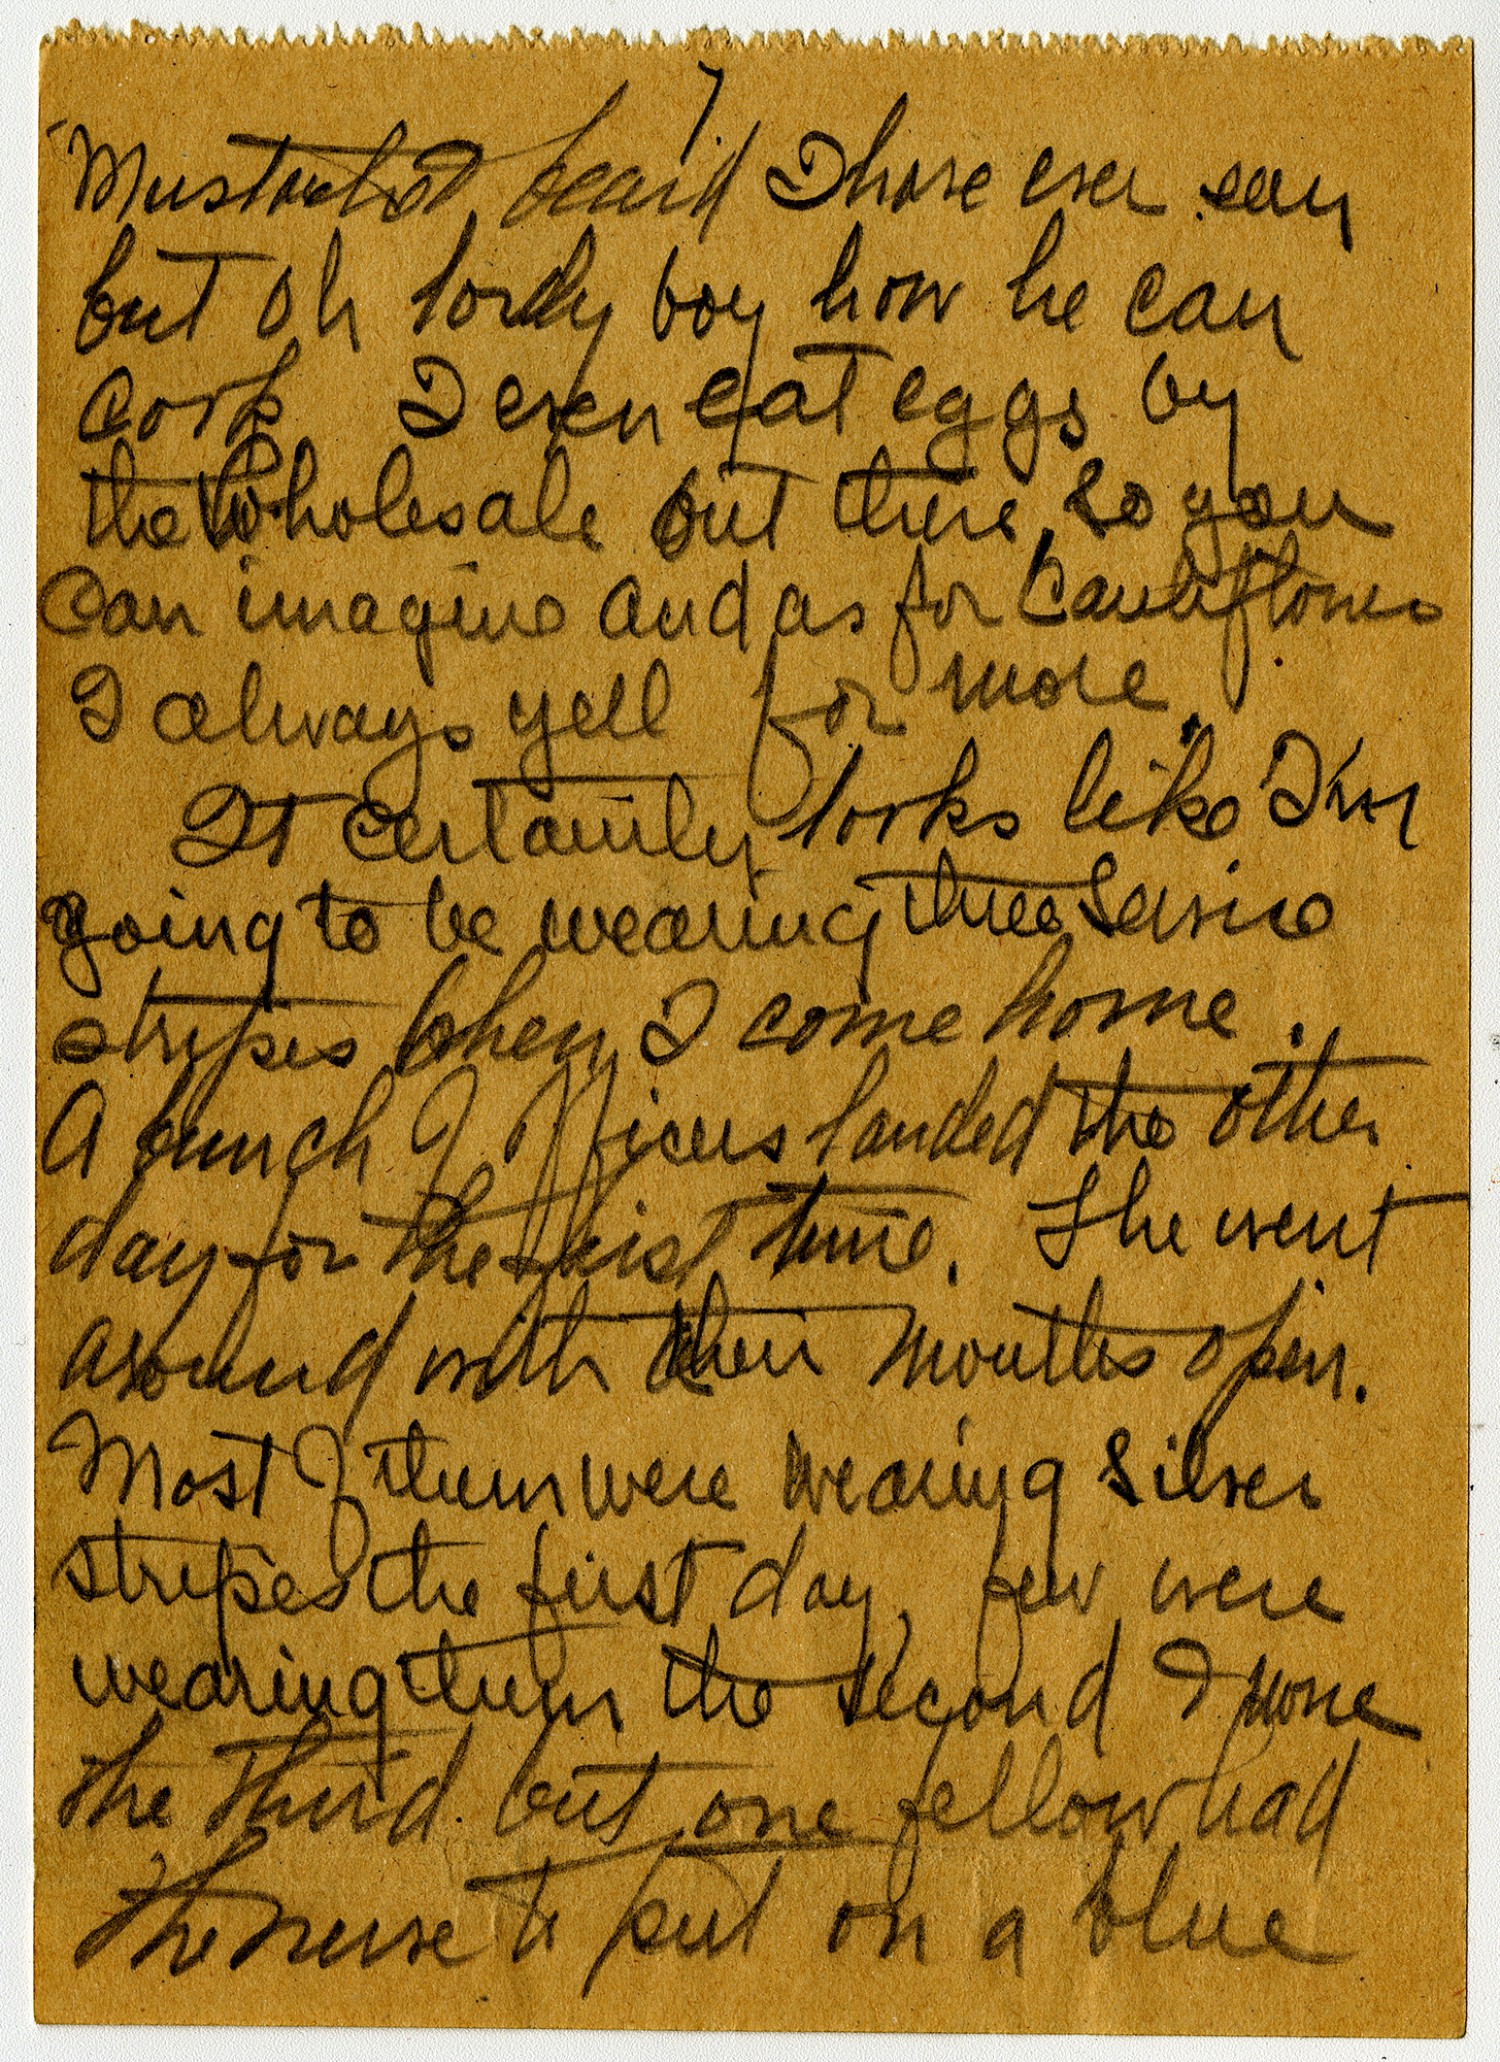 7.
Mustached beard I have ever seen
but oh lordy boy how he can
cook I even eat eggs by
the wholesale out there, so you
can imagine and as for cauliflower
I always yell for more.
It certainly looks like I'm
going to be wearing three service
stripes when I come home.
A bunch of officers landed the other
day for the first time. The went
around with their mouths open.
Most of them were wearing silver
stripes the first day, few were
wearing them the second & none
the third. but one fellow had
the nerve to put on a blue